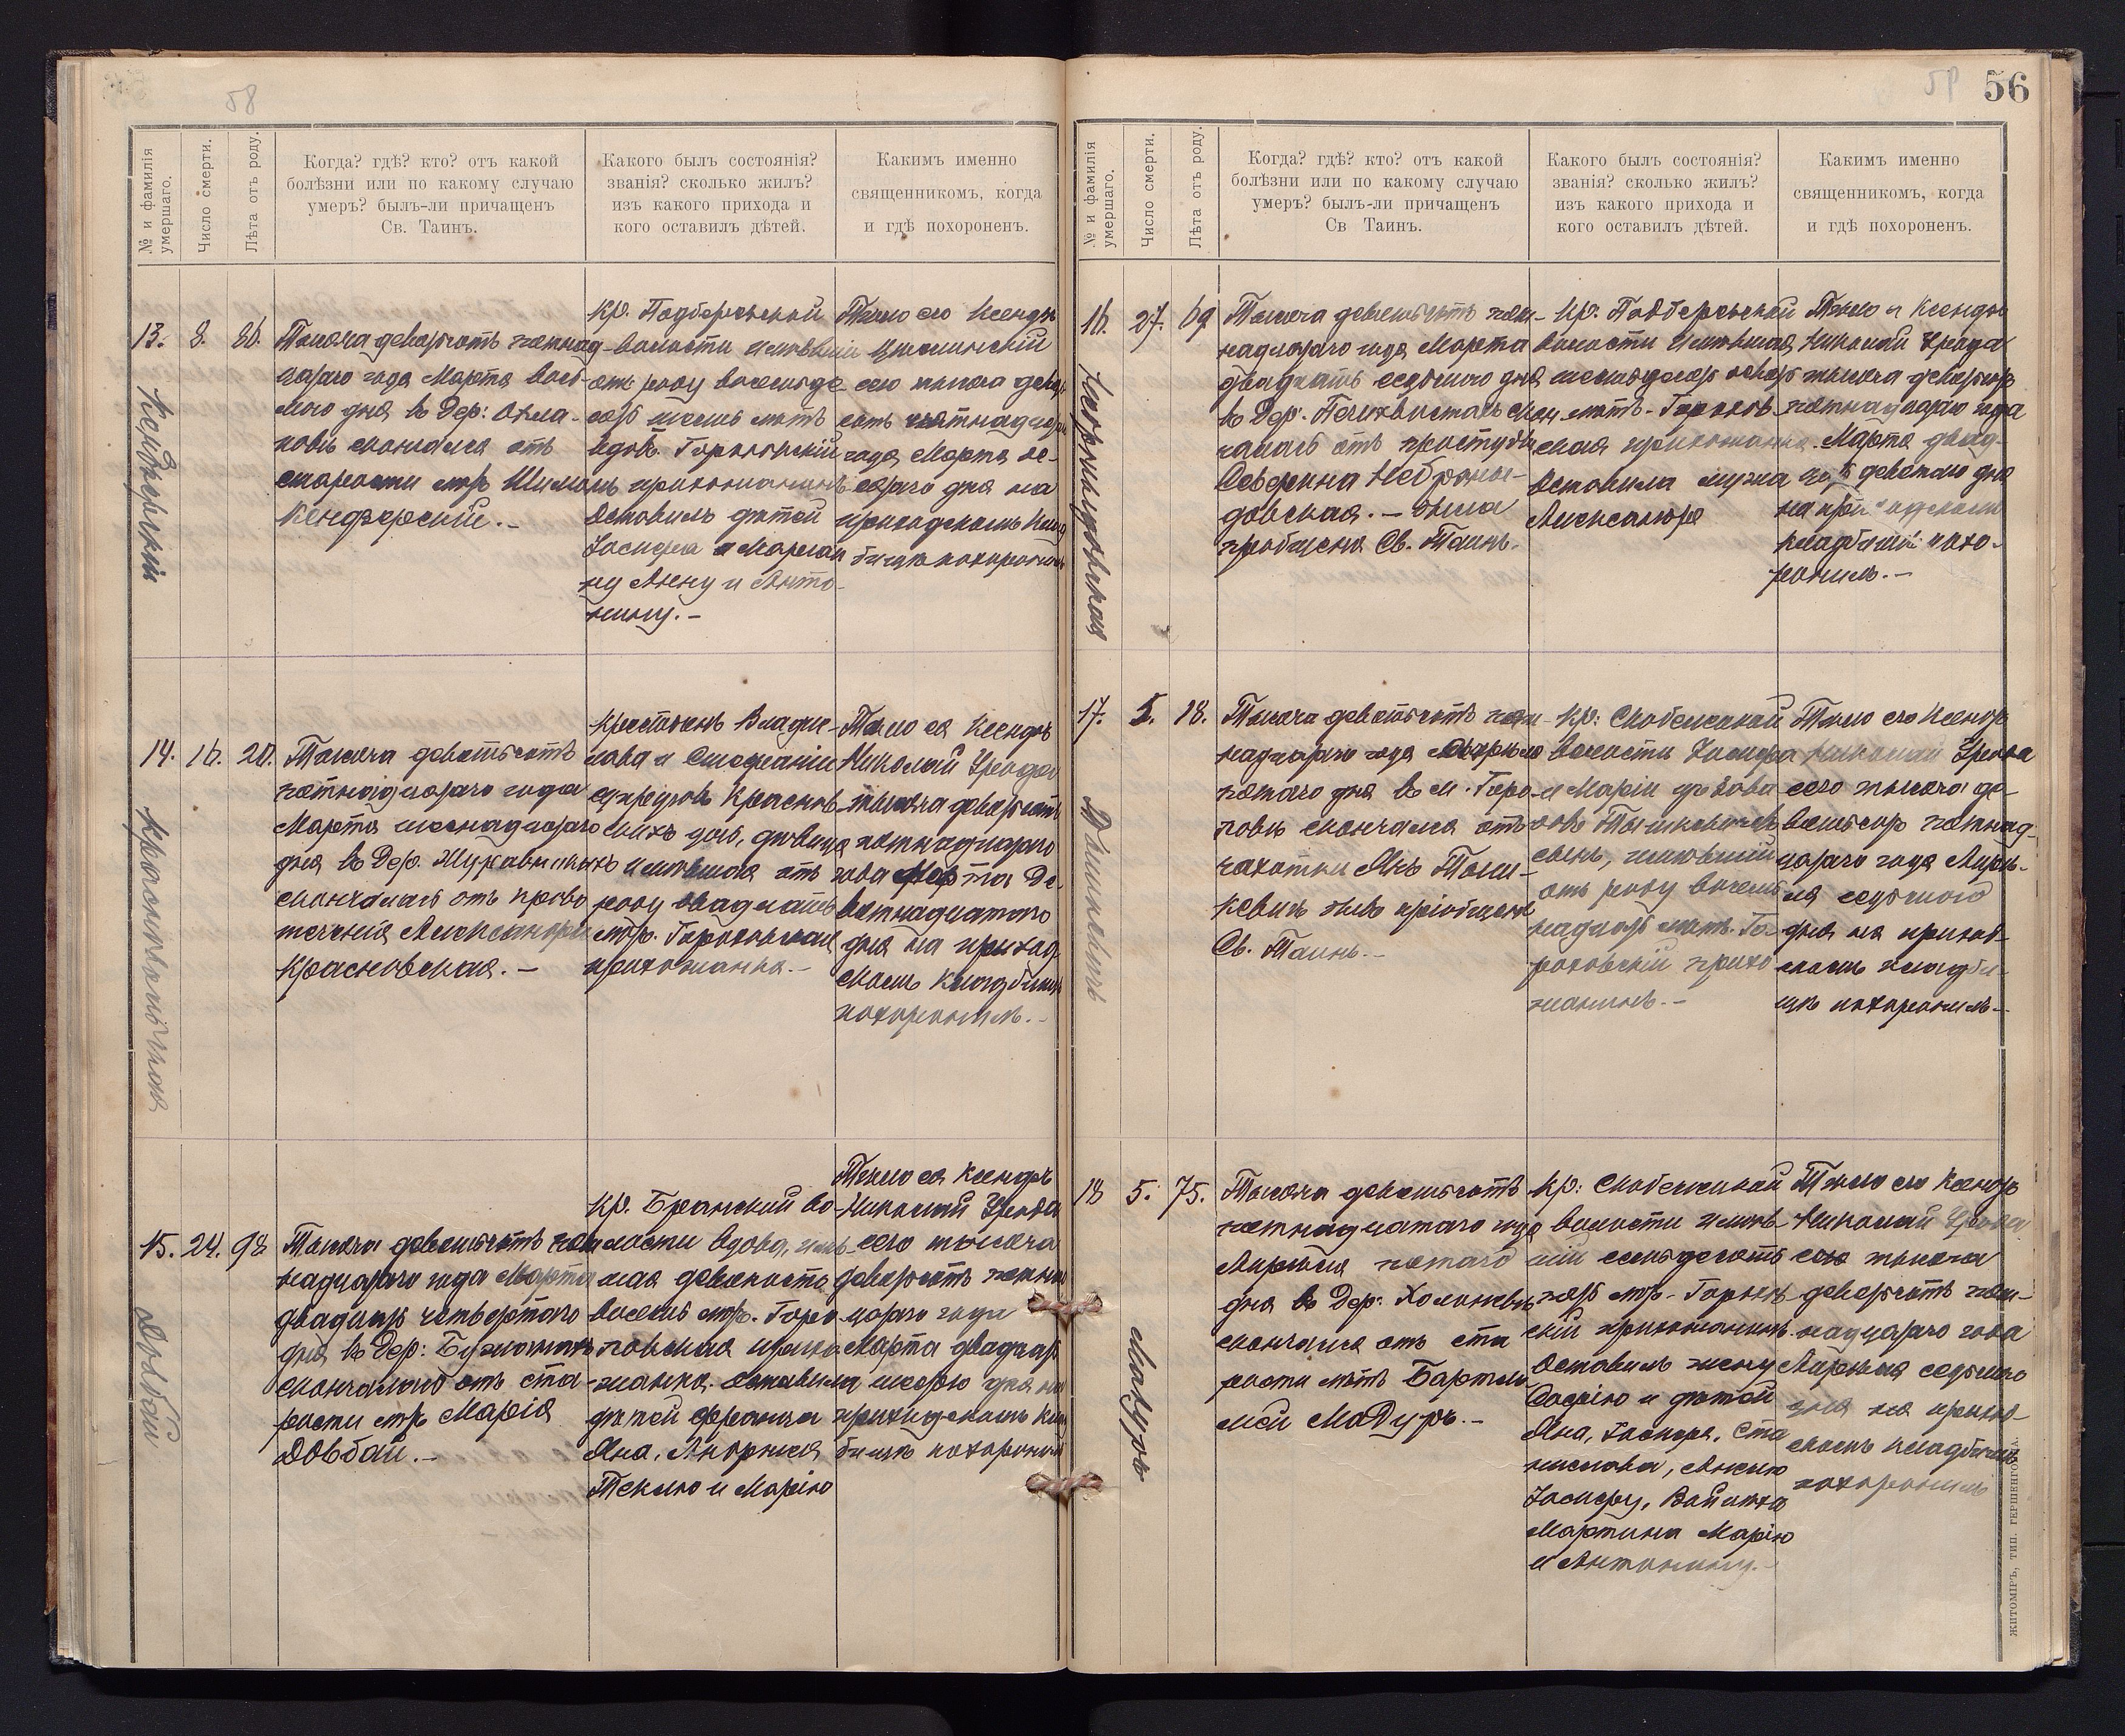 58
№ и фамилія умершаго.
Число смерти.
Лѣта отъ роду.
Когда? гдѣ? кто? отъ какой
болѣзни или по какому случаю
умеръ? былъ-ли причащенъ
Св. Таинъ.
Какого былъ состоянія?
званія? сколько жилъ?
изъ какого прихода и
кого оставилъ дѣтей.
Какимъ именно
священникомъ, когда
и гдѣ похороненъ.
13.
8.
86.
Тысяча девятьсотъ пятнад-
цатаго года Марта вось-
мого дня въ дер:
скончался отъ
старости
Кендзерскій.-
Кр. Подберезской
волости имѣвшій
отъ роду восемьде-
сятъ шесть лѣтъ
вдов. Гороховскій
прихожанинъ
Оставилъ дѣтей
Іосифа и Маріан
ну Анну и Анто-
нину.-
Тѣло его Ксендзъ
сего тысяча девять
сотъ пятнадцатаго
года Марта де-
сятаго дня на
приходскомъ клад
бищѣ похоронилъ
14.
16.
20.
Красновольская
Тысяча девятьсотъ
пятнадцатаго года
Марта шестнадцатаго
дня въ дер.
скончалась отъ крово
теченія Александра
Красновская.-
Крестьянъ Владис-
лава и Стефаніи
супруговъ Краснов-
скихъ дочь, дѣвица
имѣвшая отъ
роду двадцать
лѣтъ. Гороховская
прихожанка.-
Тѣло ея Ксендзъ
Николай
тысяча девятьсотъ
пятнадцатаго
года Марта де-
вятнадцатаго
дня на приход-
скомъ кладбищѣ
похоронилъ.-
15.
24.
98
Довбай
Тысяча девятьсотъ пят
надцатаго года Марта
двадцать четвертаго
дня въ дер:
скончалась отъ ста-
рости Марія
Довбай.-
Кр. Бранский во-
лости вдова, имѣв-
шая девяносто
восемь лѣтъ. Горо-
ховская прихо
жанка. Оставила
дѣтей Франца
Яна, Андржея
Теклю и Марію
Тѣло ея Ксендзъ
Николай
сего тысяча
девятьсотъ пятнад
цатаго года
Марта двадцать
шестого дня на
приходскомъ клад
бищѣ похоронилъ
56
№ и фамилія умершаго.
Число смерти.
Лѣта отъ роду.
Когда? гдѣ? кто? отъ какой
болѣзни или по какому случаю
умеръ? былъ-ли причащенъ
Св Таинъ.
Какого былъ состоянія?
званія? сколько жилъ?
изъ какого прихода и
кого оставилъ дѣтей.
Какимъ именно
священникомъ, когда
и гдѣ похороненъ.
16.
27.
69
Тысяча девятьсотъ пят-
надцатаго года Марта
двадцать седьмого дня
въ дер. скон
чалась отъ простуды
Северина
была
пріобщена Св. Таинъ.
Кр. Подберезской
волости имѣвшая
шестьдесятъ девять
лѣтъ. Горохов-
ская прихожанка.
Оставила мужа
Александра
Тѣло я Ксендзъ
Николай
тысяча девятьсотъ
пятнадцатаго года
Марта двад-
цать девятаго дня
на приходскомъ
кладбищѣ похо-
ронилъ.-
17.
5.
18.
Тысяча девятьсотъ пят-
надцатаго года Апрѣля
пятаго дня въ м. Горо-
ховѣ скончался отъ
чахотки Янъ
былъ пріобщенъ
Св. Таинъ.-
Кр: Скобелецкой
волости Іосифа
и Маріи
сынъ, имѣвшій
отъ роду восемь
надцать лѣтъ. Го-
роховскій прихо
жанинъ.-
Тѣло его Ксендзъ
Николай
сего тысяча де-
вятьсотъ пятнад-
цатаго года Апрѣ-
ля седьмого
дня на приход-
скомъ кладби-
щѣ похоронилъ-
18
5.
75.
Мадуръ
Тысяча девятьсотъ
пятнадцатаго года
Апрѣля пятаго
дня въ дер:
скончался отъ ста
рости лѣтъ Бартоло
мей Мадуръ.-
Кр: Скобелецкой
волости имѣв-
шій семьдесятъ
пять лѣтъ. Горохов-
скій прихожанинъ
Оставилъ жену
Софію и дѣтей
Яна, Іосифа, Ста
нислава,
Іосифу, Войцѣха
Мартина Марію
и Антонину.-
Тѣло его Ксендзъ
Николай
сего тысяча
девятьсотъ пят-
надцатаго года
Апрѣля седьмого
дня на приход-
скомъ кладбищѣ
похоронилъ
ЖИТОМІРЪ, ТИП. ГЕРШЕНГО